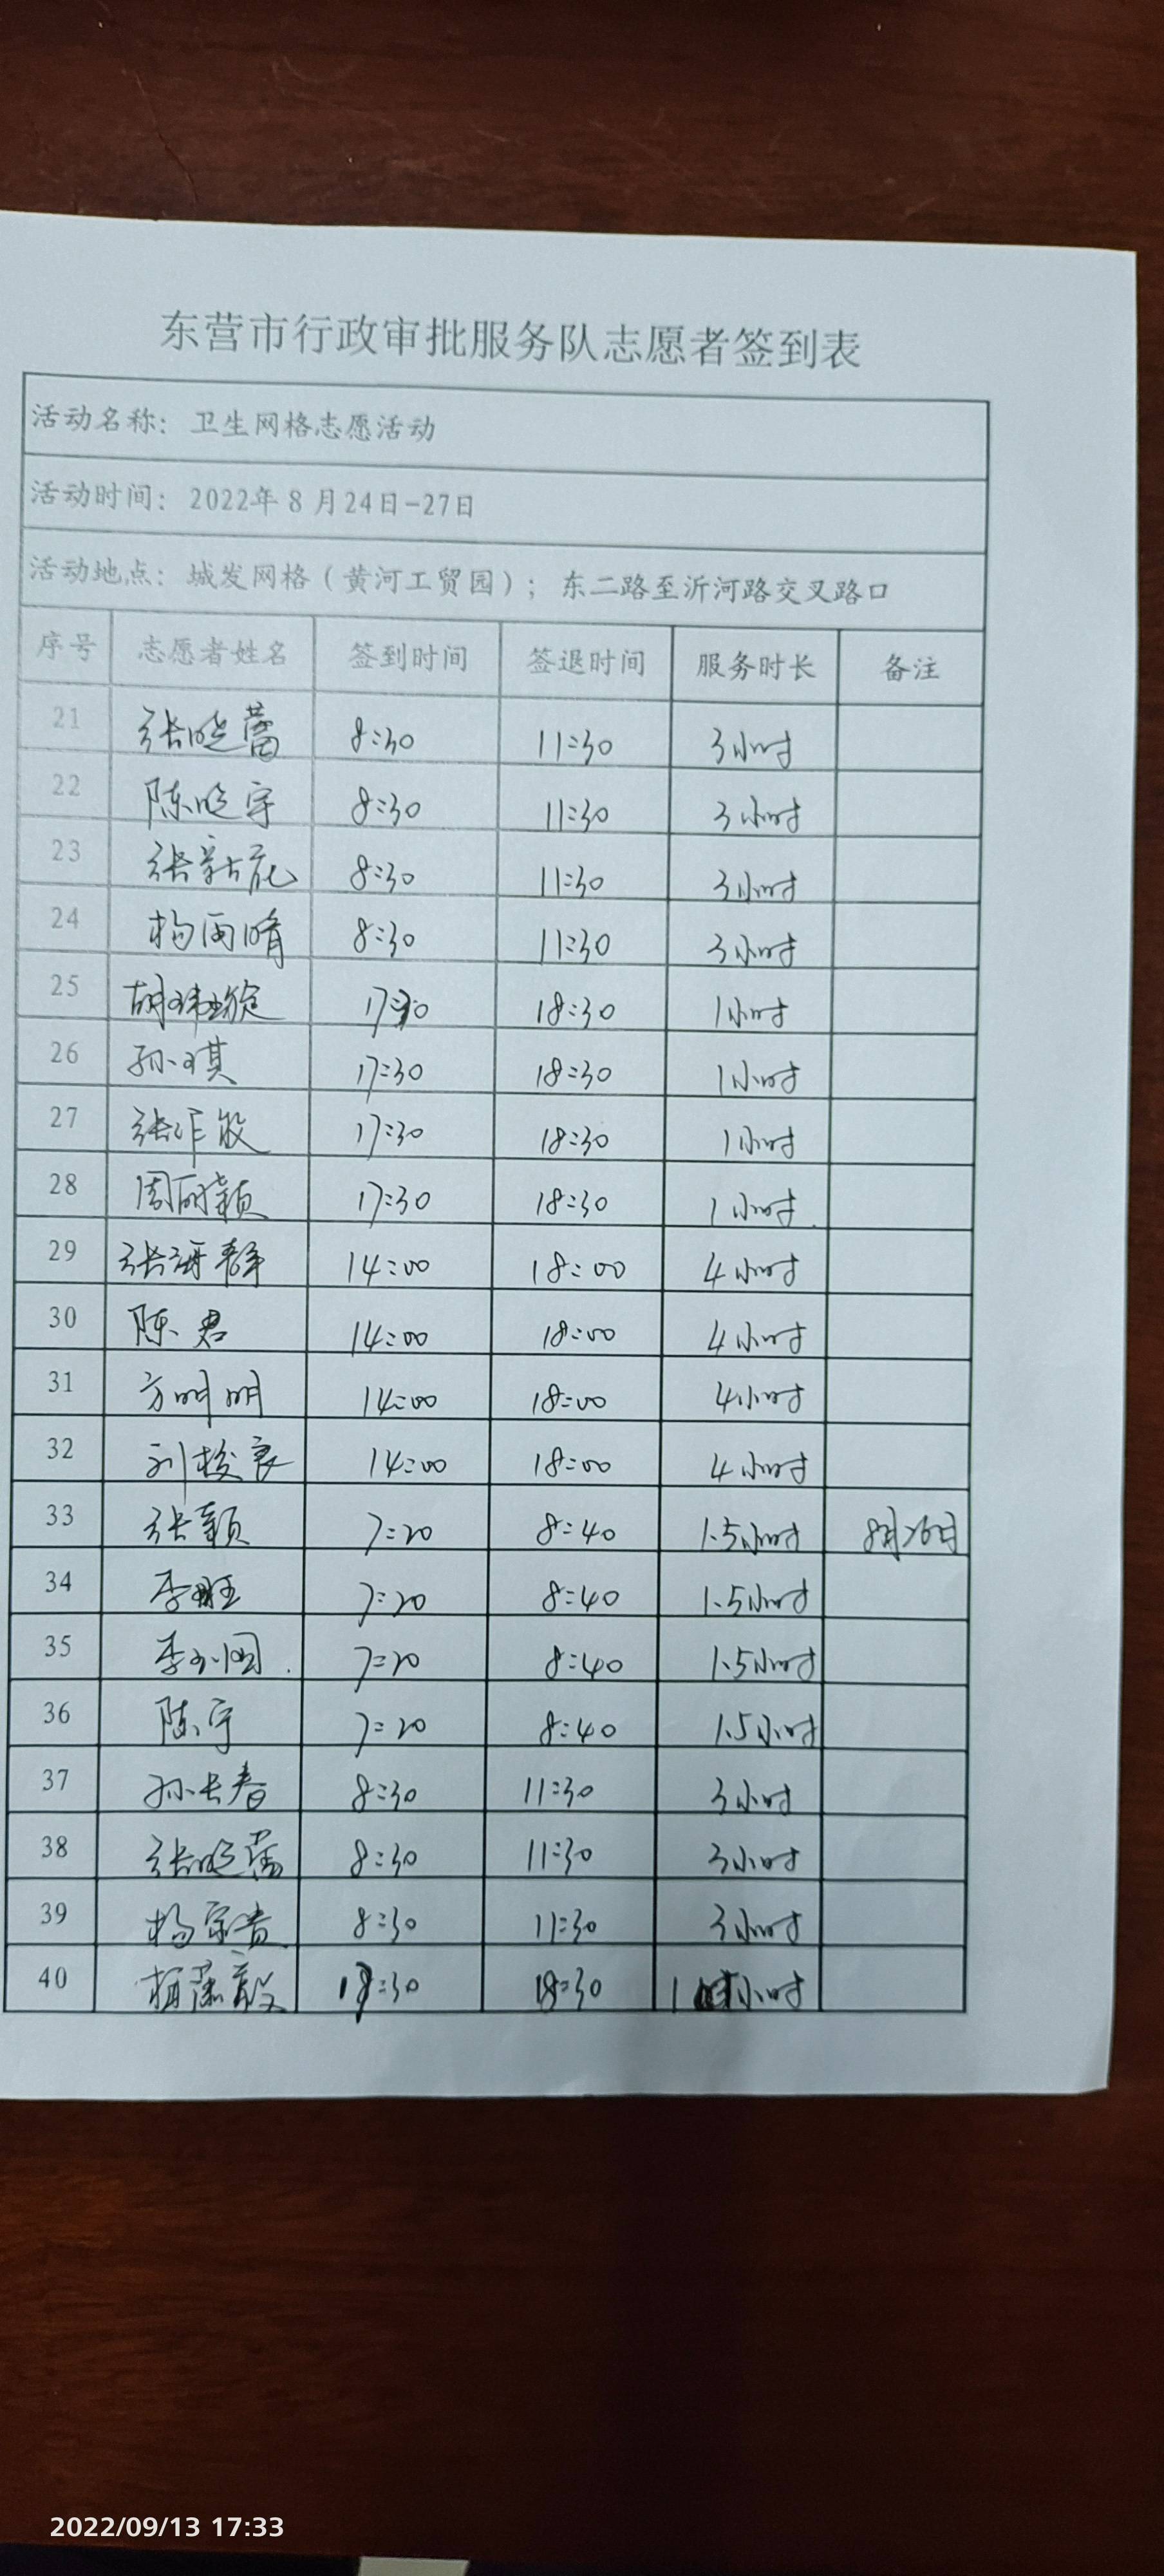 东营市行政审批服务队志愿者签到表
活动名称：卫生网格志愿活动
活动时间：2022年8月24日-27日
活动地点：城发网格（黄河工贸园）；东二路至沂河路交叉路口
序号 志愿者姓名 签到时间 签退时间 服务时长 备注
21 张晓蕾 8:30 11:30 3小时
22 陈晓宇 8:30 11:30 3小时
23 张新花 8:30 11:30 3小时
24 杨雨晴 8:30 11:30 3小时
25 胡 17:30 18:30 1小时
26 孙琪 17:30 18:30 1小时
27 张 17:30 18:30 1小时
28 周丽颖 17:30 18:30 1小时
29 张海静 14:00 18:00 4小时
30 陈君 14:00 18:00 4小时
31 方明明 14:00 18:00 4小时
32 刘梭良 14:00 18:00 4小时
33 张颖 7:20 8:40 1.5小时 8月26日
34 李旺 7:20 8:40 1.5小时
35 李 7:20 8:40 1.5小时
36 陈宇 7:20 8:40 1.5小时
37 孙长春 8:30 11:30 3小时
38 张晓蕾 8:30 11:30 3小时
39 杨宗贵 8:30 11:30 3小时
40 17:30 18:30 1小时
2022/09/13 17:33